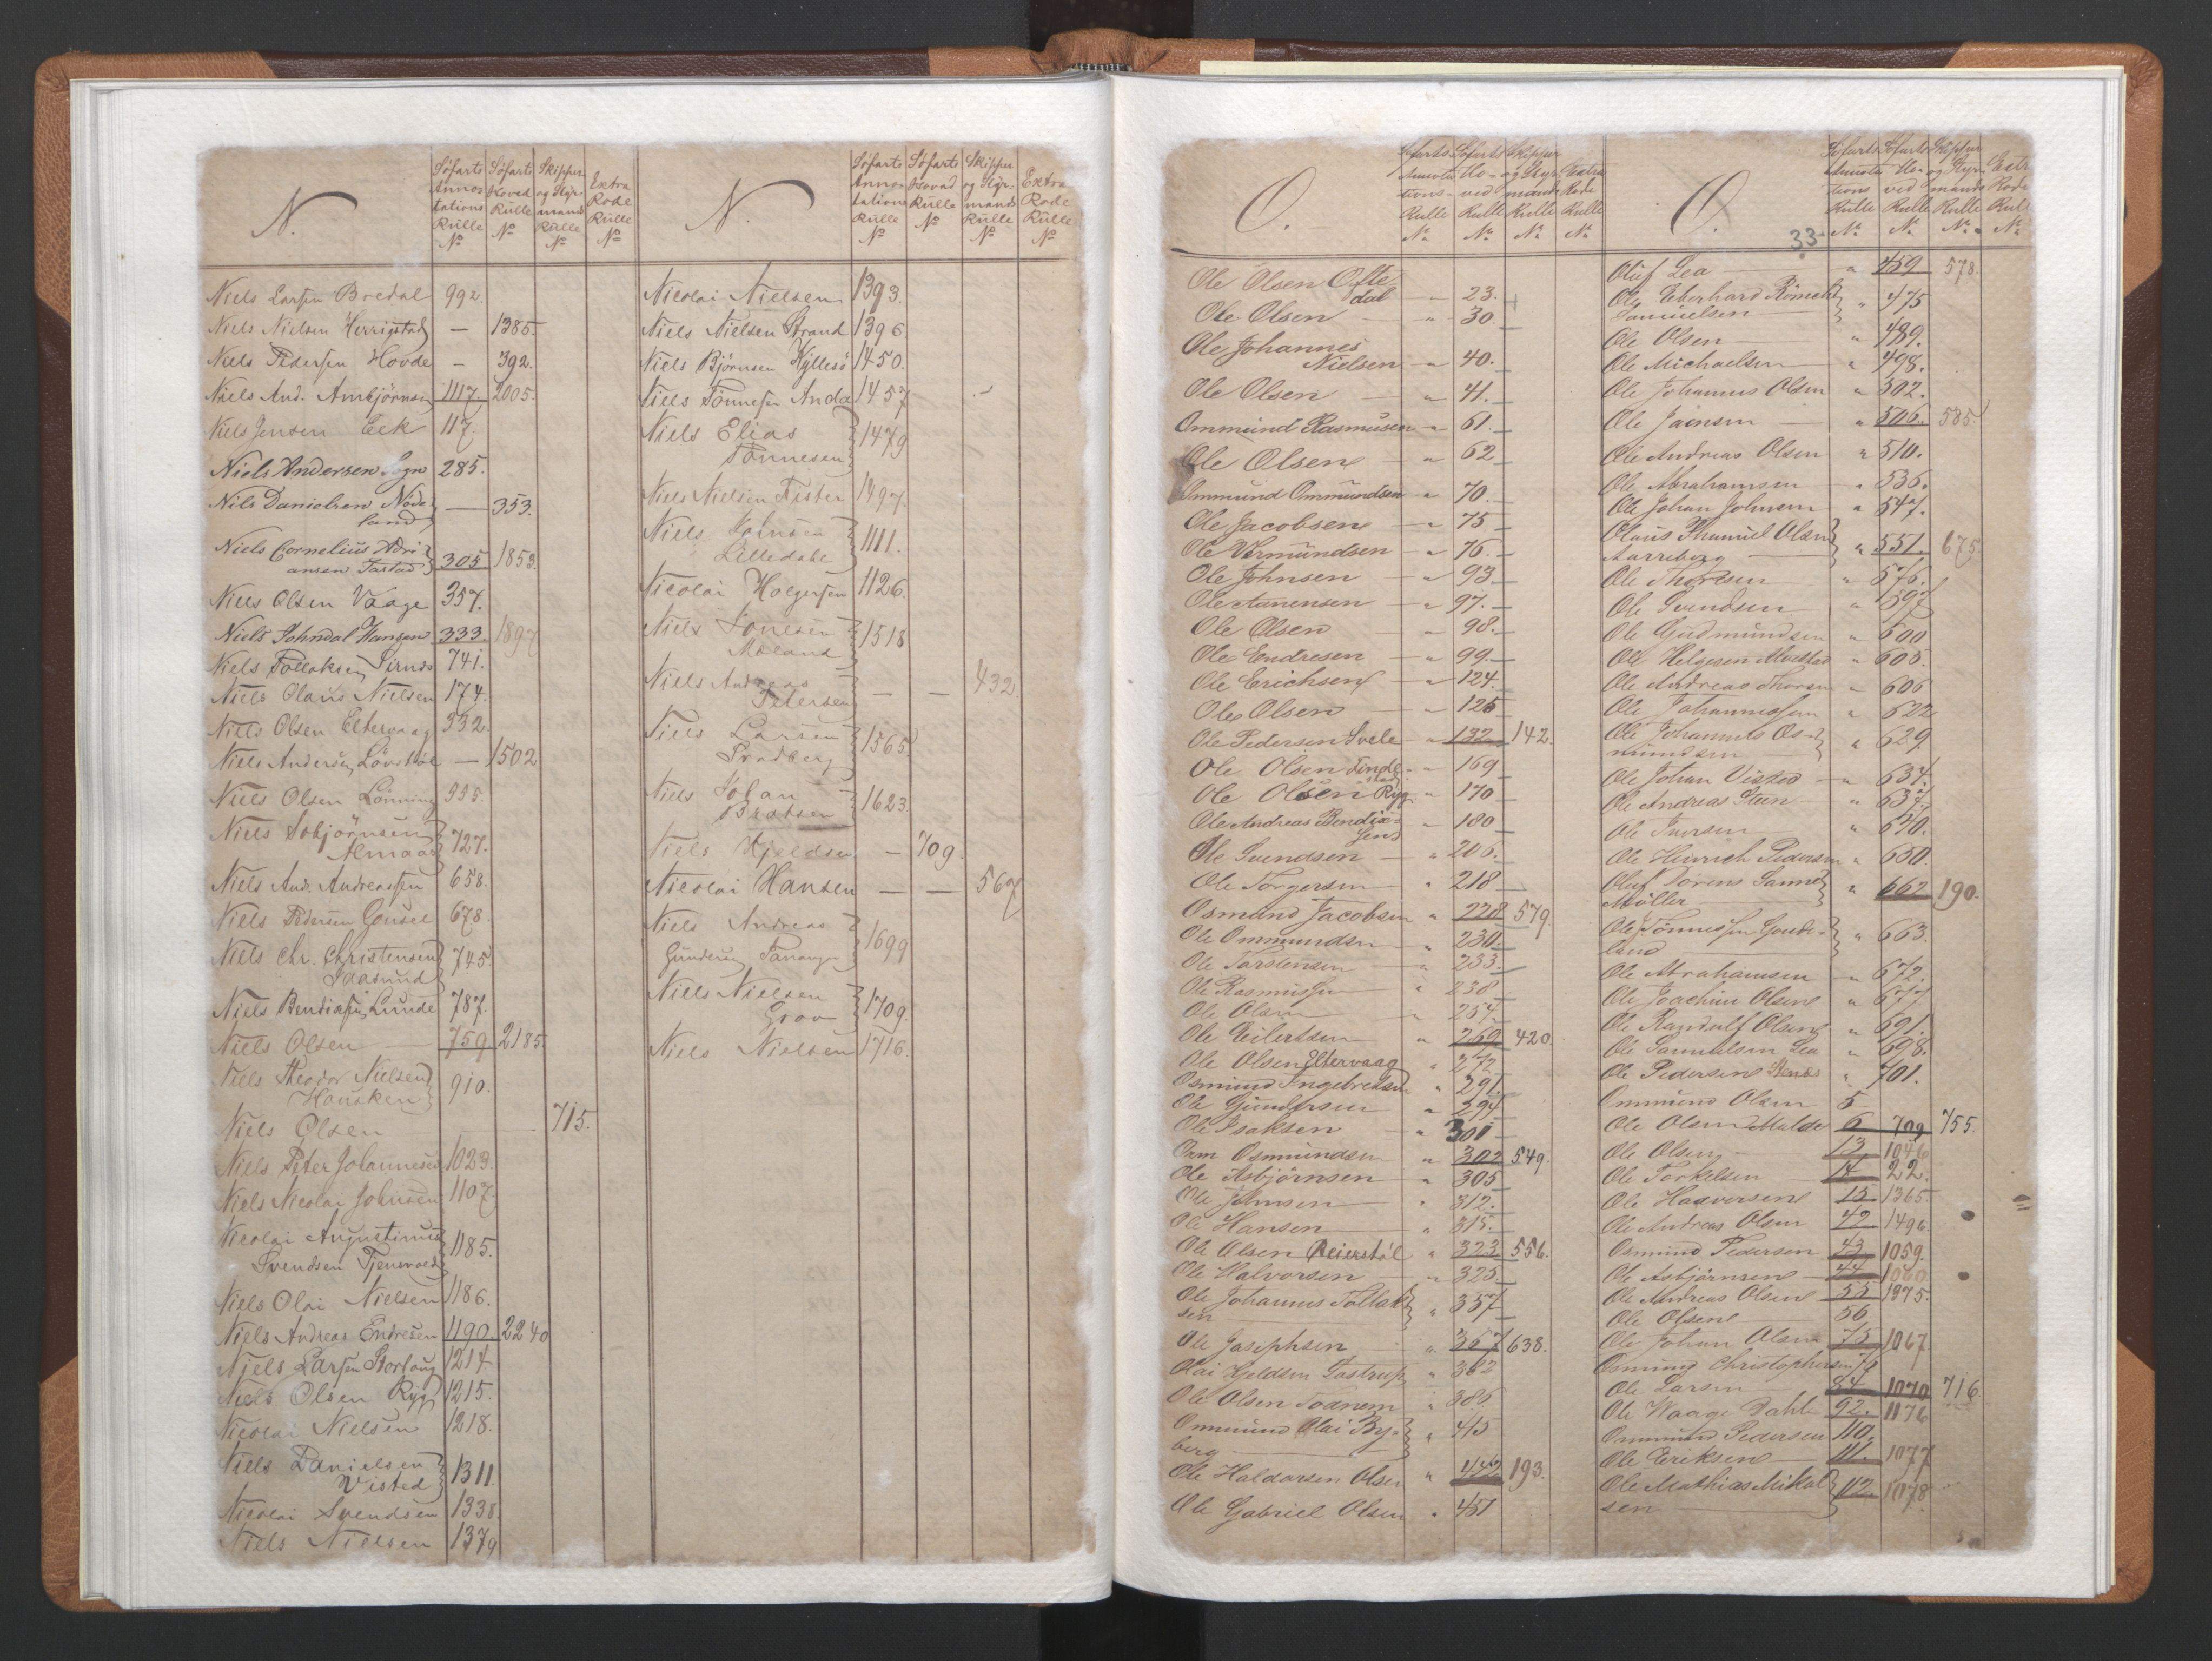 N.
Søfarts Annotations Rulle No
Søfarts Hoved Rulle No
Skipper og Styrmands Rulle No
Extra Rode Rulle No
Niels Larsen Bredal 992.
Niels Nielsen Herrigstad — 1385.
Niels Pedersen Hovde — 392.
Niels And. Ambjörnsen 1117. 2005.
Niels Jensen Eek 117.
Niels Andersen Sogn 285.
Nils Danielsen Nöde-
land — 353.
Niels Cornelius Adri-
ansen Tastad 305 1853.
Niels Olsen Vaage 357.
Niels Johndal Hansen 333. 1897
Niels Tollaksen Sirnes 741.
Niels Olaus Nielsen 174.
Niels Olsen Eltervaag 332
Niels Andersen — 1502
Niels Olsen Lönning 555.
Niels Asbjörnsen
Almaas 727.
Niels And. Andreassen 658.
Niels Pedersen Gousel 678.
Niels Chr. Christensen
Saasund 745.
Niels Bendixsen Lunde 787.
Niels Olsen — 759 2185
Niels Theodor Nielsen
Hausken 910.
Niels Olsen 715.
Niels Peter Johannesen 1023.
Niels Nicolai Johnsen 1107
Nicolai Augustinus
Svendsen Tjensvold 1185.
Niels Olai Nielsen 1186.
Niels Andreas Endresen 1190 2240
Niels Larsen Storhaug 1214
Niels Olsen Ryg 1215.
Nicolai Nielsen 1218.
Niels Danielsen
Visted 1311.
Nicolai Svendsen 1338.
Niels Nielsen 1379
N.
Søfarts Annotations Rulle No
Søfarts Hoved Rulle No
Skipper og Styrmands Rulle No
Extra Rode Rulle No
Nicolai Nielsen 1393.
Niels Nielsen Strand 1396
Niels Björnsen Hyllesö 1450.
Niels Tönnesen Anda 1457
Niels Elias
Tönnesen 1479
Niels Nielsen Fister 1497.
Niels Johnsen
Lilledale 1111.
Nicolai Holgersen 1126.
Niels Jonesen
Moland 1518
Niels Andreas
Petersen — — 432
Niels Larsen
Sradberg 1565
Niels Johan
Bertsen 1623
Niels Kjeldsen — 709.
Nicolai Hansen — — 567
Niels Andreas
Gundersen Tananger 1699
Niels Nielsen
Grov 1709.
Niels Nielsen 1716.
O.
Søfarts Annotations- Rulle No
Søfarts Hoved Rulle No
Skipper og Styrmands Rulle No
Extra Rode Rulle No
Ole Olsen Ofte-
dal — " 23.
Ole Olsen — " 30
Ole Johannes
Nielsen — " 40.
Ole Olsen — " 41.
Ommund Rasmusen " 61.
Ole Olsen — " 62
Ommund Ommundsen " 70.
Ole Jacobsen — " 75
Ole Vermundsen — " 76.
Ole Johnsen — " 93
Ole Aanensen — " 97.
Ole Olsen " 98.
Ole Endresen — " 99.
Ole Erichsen — " 124.
Ole Olsen — " 125
Ole Pedersen Svele " 132 142.
Ole Olsen " 169
Ole Olsen Ryg " 170
Ole Andreas Bendix-
sen " 180
Ole Svendsen — " 206.
Ole Torgersen " 218
Osmund Jacobsen " 228 579.
Ole Ommundsen " 230.
Ole Torstensen " 233.
Ole Rasmussen " 238
Ole Olsen " 254.
Ole Eilertsen " 269 420.
Ole Olsen Eltervaag " 272
Osmund Ingebretsen " 291.
Ole Gundersen " 294
Ole Isaksen — " 301
Orm Osmundsen " 302 549.
Ole Asbjörnsen " 305
Ole Johnsen " 312.
Ole Hansen " 315.
Ole Olsen Reierstøl " 323 556.
Ole Halvorsen " 325.
Ole Johannes Tollak-
sen " 357
Ole Josephsen " 367 638.
Olai Kjeldsen Tastrup " 382
Ole Olsen Todnem " 386
Ommund Olai By-
berg " 415
Ole Haldorsen Olsen " 442 193.
Ole Gabriel Olsen " 451
O.
33.
Søfarts Annotations Rulle No
Søfarts Hoved Rulle No
Skipper og Styrmands Rulle No
Extra Rode Rulle No
Oluf Lea — " 459 578.
Ole Eberhard
Samuelsen " 475
Ole Olsen " 489.
Ole Michaelsen " 498.
Ole Johannes Olsen " 502.
Ole Jacnsen — " 506. 585.
Ole Andreas Olsen " 510.
Ole Abrahamsen " 536.
Ole Johan Johnsen " 547.
Olaus Thamuel Olsen
Aarreberg " 551. 675.
Ole Thorsen " 576.
Ole Svendsen " 597
Ole Gudmundsen " 600
Ole Helgesen Alvestad " 605.
Ole Andreas Thorsen " 606
Ole Johannessen " 622
Ole Johannes Os-
mundsen " 629.
Ole Johan Visted " 634.
Ole Andreas Steen " 637.
Ole Iversen " 640.
Ole Hinrich Pedersen " 650.
Oluf Sörens Sanne
Möller " 662 190.
Ole Tönnessen Goude-
land " 663.
Ole Abrahamsen " 672.
Ole Joachim Olsen " 677
Ole Randulf Olsen " 691.
Ole Samuelsen Lea " 698.
Ole Pedersen " 701.
Ommund Olsen 5
Ole Olsen Malde 6 709 755.
Ole Olsen 13 1046
Ole Torkelsen — 14 22.
Ole Haaversen 15 1365
Ole Andreas Olsen 42 1496.
Osmund Pedersen 43 1059.
Ole Asbjörnsen — 44 1060.
Ole Andreas Olsen 55 1375.
Ole Olsen 56
Ole Johan Olsen 75 1067.
Osmund Christophersen 79
Ole Larsen 84 1070 716.
Ole Waage Dahle 92. 1176
Ommund Pedersen 110.
Ole Eriksen 111. 1077
Ole Mathias Mikal-
sen 112. 1078